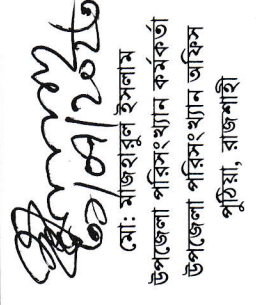 মো: মাজহারুল ইসলাম
উপজেলা পরিসংখ্যান কর্মকর্তা
উপজেলা পরিসংখ্যান অফিস
পুঠিয়া, রাজশাহী